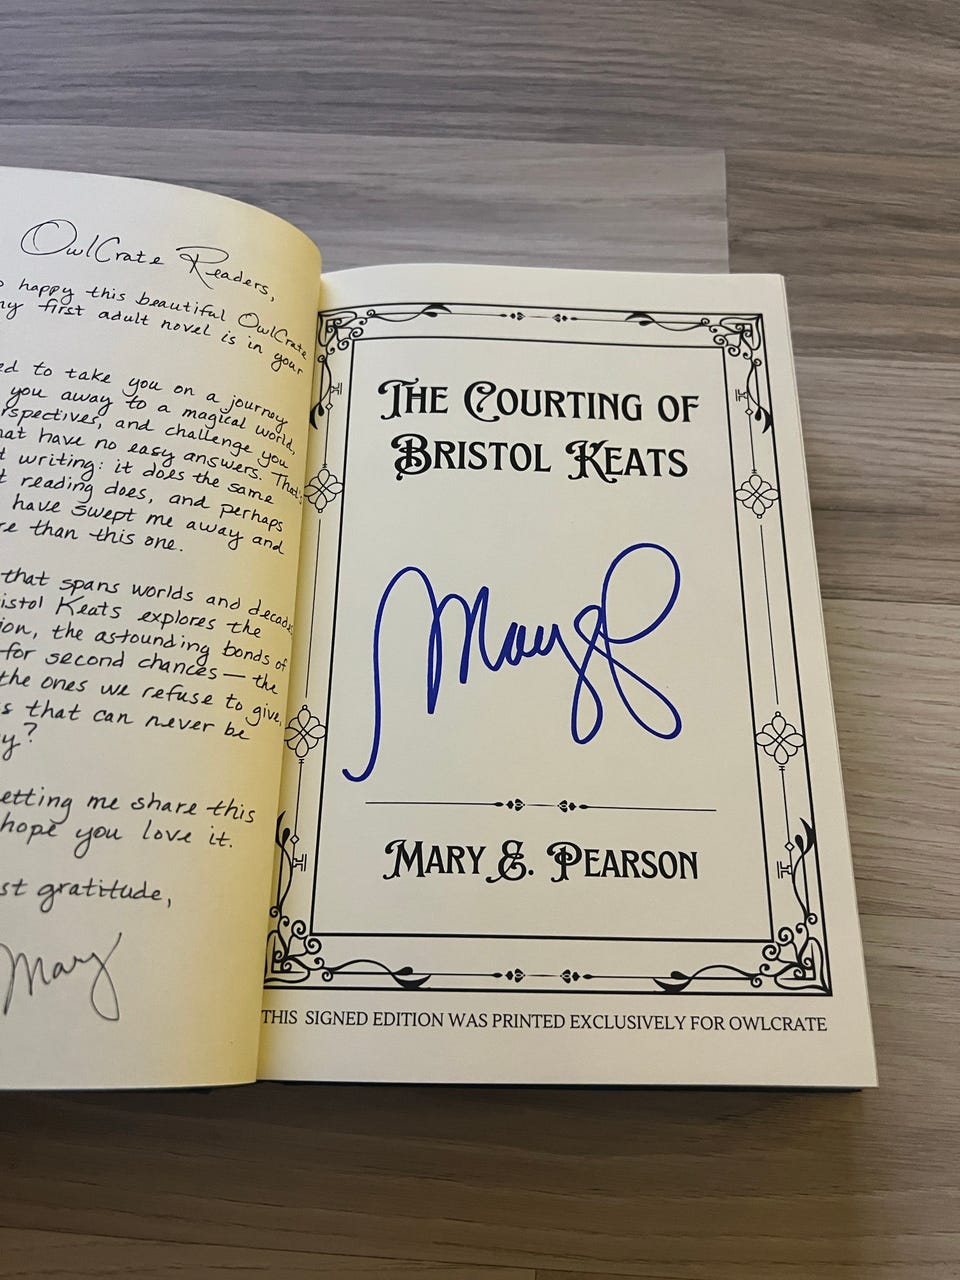 OwlCrate Readers,
happy this beautiful OwlCrate
my first adult novel is in your
to take you on a journey
you away to a magical world,
and challenge you
have no easy answers. That's
writing: it does the same
reading does, and perhaps
have swept me away and
than this one.
that spans worlds and decades,
Keats explores the
the astounding bonds of
for second chances — the
the ones we refuse to give,
that can never be
me share this
hope you love it.
gratitude,
Mary
THE COURTING OF
BRISTOL KEATS
Mary E P
MARY E. PEARSON
THIS SIGNED EDITION WAS PRINTED EXCLUSIVELY FOR OWLCRATE